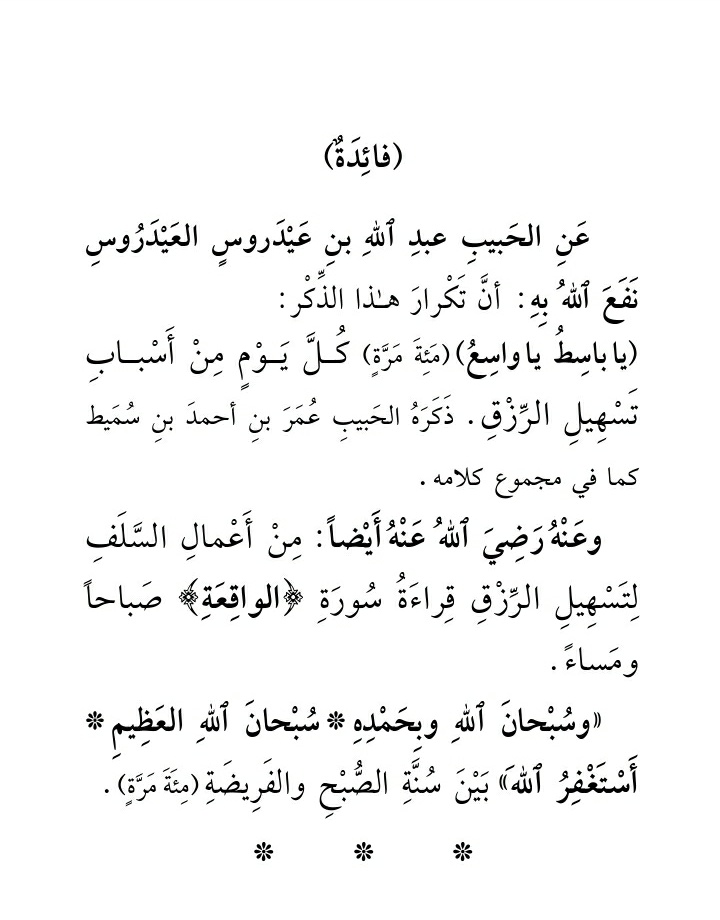 (فائِدَةٌ)
عَنِ الحَبيبِ عبدِ ٱللهِ بنِ عَيْدَروسٍ العَيْدَرُوسِ
نَفَعَ ٱللهُ بِهِ: أنَّ تَكْرارَ هـٰذا الذِّكْر:
(يا باسِطُ يا واسِعُ) (مَئِةَ مَرَّةٍ) كُـلَّ يَـوْمٍ مِنْ أَسْبـابِ
تَسْهِيلِ الرِّزْقِ. ذَكَرَهُ الحَبيبِ عُمَرَ بنِ أحمدَ بنِ سُمَيط
كما في مجموع كلامه.
وعَنْهُ رَضِيَ ٱللهُ عَنْهُ أَيْضاً: مِنْ أَعْمالِ السَّلَفِ
لِتَسْهِيلِ الرِّزْقِ قِراءَةُ سُورَةِ ﴿الواقِعَةِ﴾ صَباحاً
ومَساءً.
«وسُبْحانَ ٱللهِ وبِحَمْدِهِ ❊ سُبْحانَ ٱللهِ العَظِيمِ ❊
أَسْتَغْفِرُ ٱللهَ» بَيْنَ سُنَّةِ الصُّبْحِ والفَرِيضَةِ (مِئَةَ مَرَّةٍ).
❊ ❊ ❊